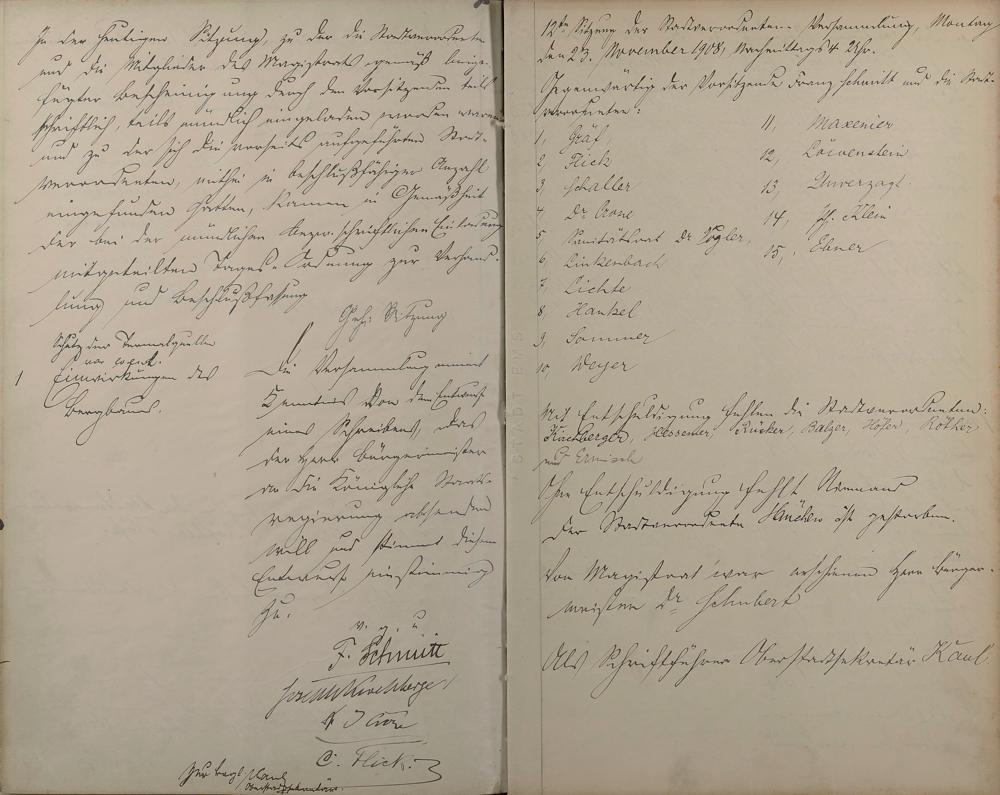 In der heutigen Sitzung, zu der die Stadtverordneten
und die Mitglieder des Magistrats gemäß beige-
fügter Bescheinigung durch den Vorsitzenden teils
schriftlich, teils mündlich eingeladen worden waren
und zu der sich die vorseits aufgeführten Stadt-
verordneten, mithin in beschlußfähiger Anzahl
eingefunden hatten, kamen in Gemäßheit
der bei der mündlichen bezw. schriftlichen Einladung
mitgeteilten Tages-Ordnung zur Verhand-
lung und Beschlußfassung
Geh. Sitzung
1
Schutz der Termalquellen
vor
Einwirkungen des
Bergbaues.
Die Versammlung nimmt
Kenntnis von dem Entwurf
eines Schreibens, das
der Herr Bürgermeister
an die Königliche Staats-
regierung absenden
will und stimmt diesem
Entwurf einstimmig
zu.
v. g. u.
F. Schmitt
Joseph Kirchberger
Dr Crone
C. Flick.
Zur Kaul
Oberstadtsekretär.
12te Sitzung der Stadtverordneten-Versammlung, Montag
den 23. November 1908, Nachmittags 4 Uhr.
Gegenwärtig der Vorsitzende Franz Schmitt und die Stadt-
verordneten:
1, Gräf
2, Flick
3, Schaller
4, Dr Crone
5, Sanitätsrat Dr Vogler,
6, Linkenbach
7, Lichte
8, Hankel
9, Sommer
10, Weyer
11, Maxeiner
12, Löwenstein
13, Unverzagt.
14, Ph. Klein
15, Ebner
Mit Entschuldigung fehlen die Stadtverordneten:
Kirchberger, Hessemer, Rücker, Balzer, Höfer, Röther
und Ermisch
Ohne Entschuldigung fehlt Niemand
Der Stadtverordnete ist gestorben.
Vom Magistrat war erschienen Herr Bürger-
meister Dr. Schubert
Als Schriftführer Oberstadtsekretär Kaul